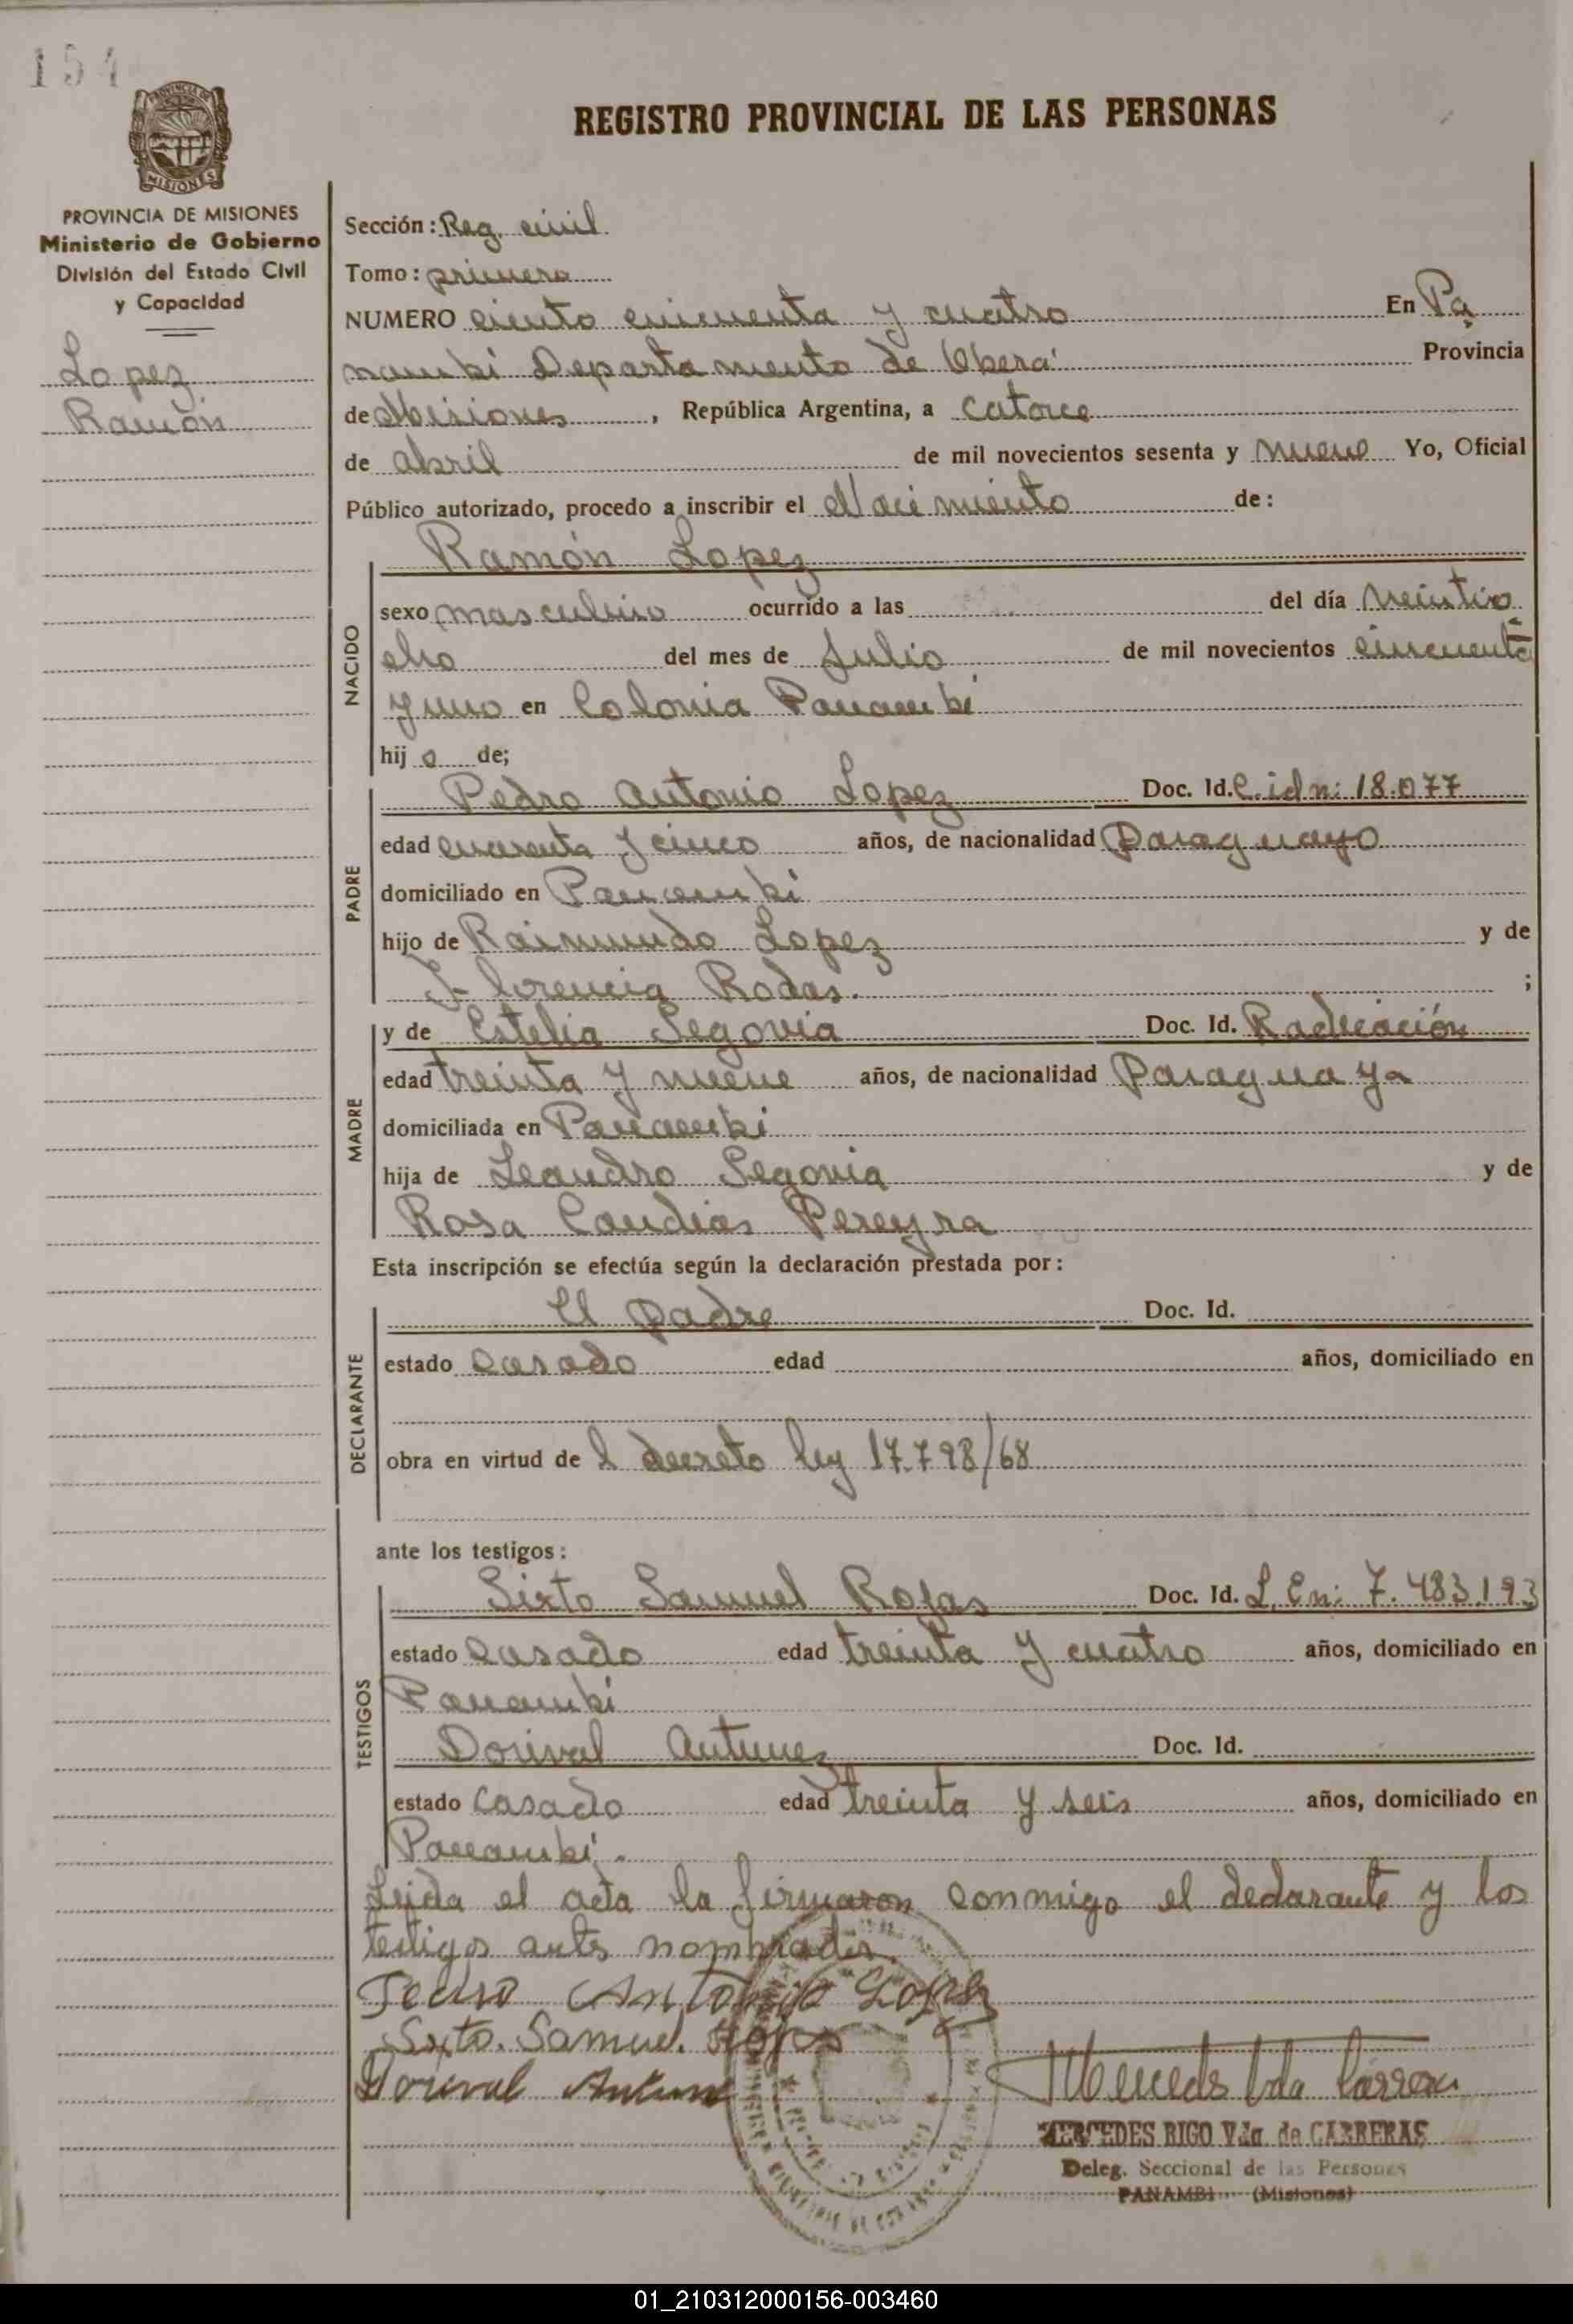 154
PROVINCIA DE MISIONES
REGISTRO PROVINCIAL DE LAS PERSONAS
PROVINCIA DE MISIONES
Ministerio de Gobierno
División del Estado Civil
y Capacidad
Lopez
Ramón
Sección: Reg. civil.
Tomo: primero
NUMERO ciento cincuenta y cuatro En Pa
nambi Departamento de Oberá Provincia
de Misiones, República Argentina, a catorce
de abril de mil novecientos sesenta y nueve Yo, Oficial
Público autorizado, procedo a inscribir el Nacimiento de:
Ramón Lopez
NACIDO
sexo masculino ocurrido a las del día veintio
cho del mes de Julio de mil novecientos cincuenta
y uno en Colonia Panambi
hij o de;
PADRE
Pedro Antonio Lopez Doc. Id. C. id n: 18.077
edad cuarenta y cinco años, de nacionalidad Paraguayo
domiciliado en Panambi
hijo de Raimundo Lopez y de
Florencia Rodas. ;
MADRE
y de Estelia Segovia Doc. Id. Radicación
edad treinta y nueve años, de nacionalidad Paraguaya
domiciliada en Panambi
hija de Leandro Segovia y de
Rosa Candias Pereyra
Esta inscripción se efectúa según la declaración prestada por:
DECLARANTE
El padre Doc. Id.
estado casado edad años, domiciliado en
obra en virtud de l decreto ley 17.798/68
ante los testigos:
TESTIGOS
Sixto Samuel Rojas Doc. Id. L. E n: 7.483.193
estado casado edad treinta y cuatro años, domiciliado en
Panambi
Dorival Antunez Doc. Id.
estado casado edad treinta y seis años, domiciliado en
Panambi.
Leida el acta la firmaron conmigo el declarante y los
testigos antes nombrados.
Pedro Antonio Lopez
Sixto. Samuel. Rojas
Dorival Antunez
Mercedes Vda Carreras
MERCEDES RIGO Vda. de CARRERAS
Deleg. Seccional de las Personas
PANAMBI (Misiones)
01_210312000156-003460